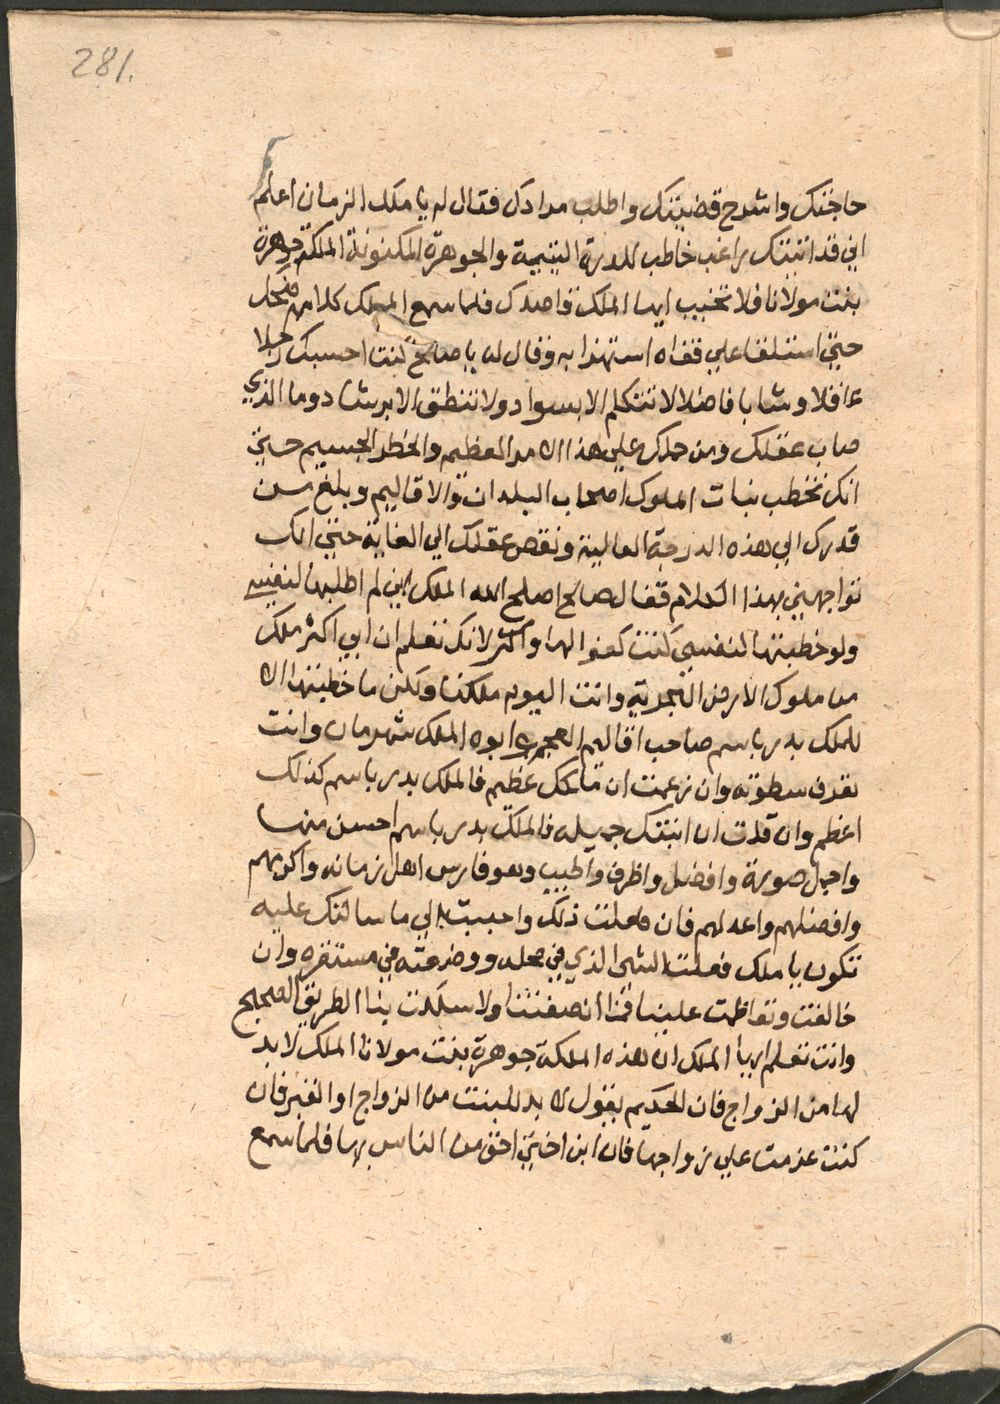 281.
حاجتك واشرح قضيتك واطلب مرادك فقال له يا ملك الزمان اعلم
اني قد اتيتك راغب خاطب للدرة اليتيمة والجوهرة المكنونة الملكة جوهرة
بنت مولانا فلا تخيب ايها الملك قاصدك فلما سمع الملك كلامه ضحك
حتي استلقا علي قفاه استهزا به وقال له يا صالح كنت احسبك رجلا
عاقلا وشابا فاضلا لا تتكلم الا بسداد ولا تنطق الا برشاد وما الذي
صاب عقلك ومن حملك علي هذا الامر العظيم والخطر الجسيم حتي
انك تخطب بنات الملوك اصحاب البلدان والاقاليم وبلغ من
قدرك الي هذه الدرجة العالية ونقص عقلك الي الغاية حتي انك
تواجهني بهذا الكلام فقال صالح اصلح الله الملك اني لم اطلبها لنفسي
ولو خطبتها لنفسي كنت كفوا لها واكثر لانك تعلم ان ابي اكثر ملك
من ملوك الارض البحرية وانت اليوم ملكنا ولكن ما خطبتها الا
للملك بدر باسم صاحب اقاليم العجم وابوه الملك شهرمان وانت
تعرف سطوته وان زعمت ان ملكك عظيم فالملك بدر باسم كذلك
اعظم وان قلت ان ابنتك جميله فالملك بدر باسم احسن منها
واجمل صورة وافضل واظرف واطيب وهو فارس اهل زمانه واكرمهم
وافضلهم واعدلهم فان فعلت ذلك واجبت الي ما سالتك عليه
تكون يا ملك فعلت الشي الذي في محله ووضعته في مستقره وان
خالفت وتعاظمت علينا فما انصفتنا ولا سلكت بنا الطريق الصحيح
وانت تعلم ايها الملك ان هذه الملكة جوهرة بنت مولانا الملك لا بد
لها من الزواج فان الحكيم يقول لا بد للبنت من الزواج او القبر فان
كنت عزمت علي زواجها فان ابن اختي احق من الناس بها فلما سمع